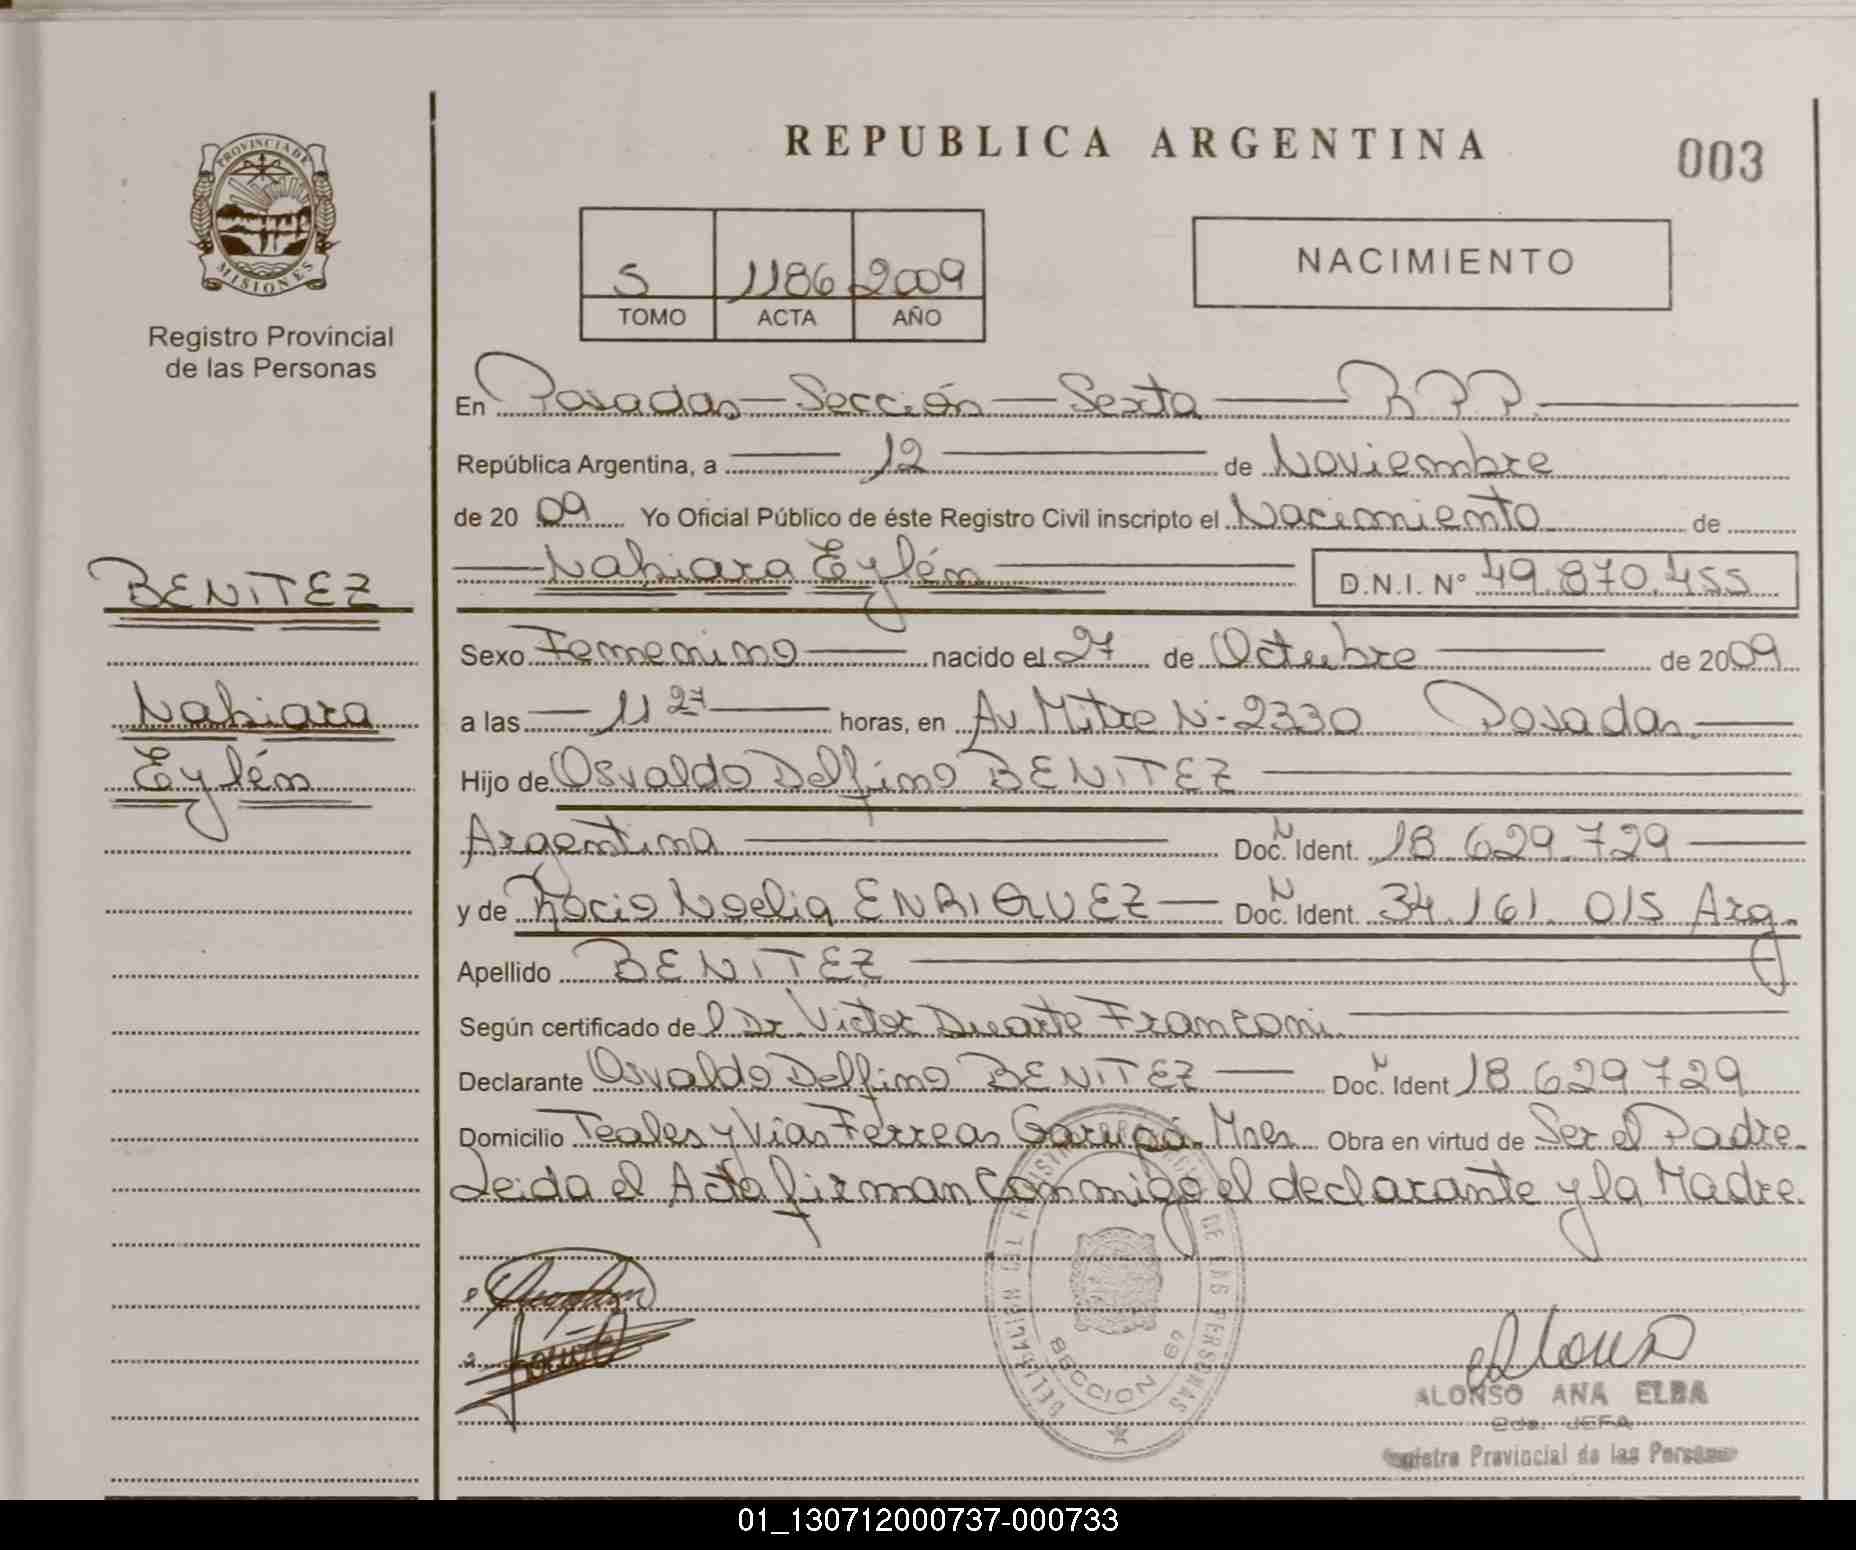 REPUBLICA ARGENTINA
003
PROVINCIA DE
MISIONES
Registro Provincial
de las Personas
5 1186 2009
TOMO ACTA AÑO
NACIMIENTO
En Posadas — Sección — Sexta — R.P.P. —
República Argentina, a — 12 — de Noviembre
de 2009 Yo Oficial Público de éste Registro Civil inscripto el Nacimiento de
— Nahiara Eylén — D.N.I. Nº 49.870.455
BENITEZ
Nahiara
Eylén
Sexo Femenino — nacido el 27 de Octubre — de 2009
a las — 11 27 — horas, en Av. Mitre Nº 2330 Posadas —
Hijo de Osvaldo Delfino BENITEZ —
Argentina — Doc. N Ident. 18.629.729 —
y de Rocio Noelia ENRIQUEZ — Doc. N Ident. 34.161.015 Arg.
Apellido BENITEZ —
Según certificado de l Dr Victor Duarte Franconi —
Declarante Osvaldo Delfino BENITEZ — Doc. N Ident 18.629.729
Domicilio Teales y Vias Ferreas Garupá. Mnes Obra en virtud de Ser el Padre.
Leida el Acta firman conmigo el declarante y la Madre.
DELEGACION DEL REGISTRO DE LAS PERSONAS
SECCION 6ª
ALONSO ANA ELBA
2da. JEFA
Registro Provincial de las Personas
01_130712000737-000733